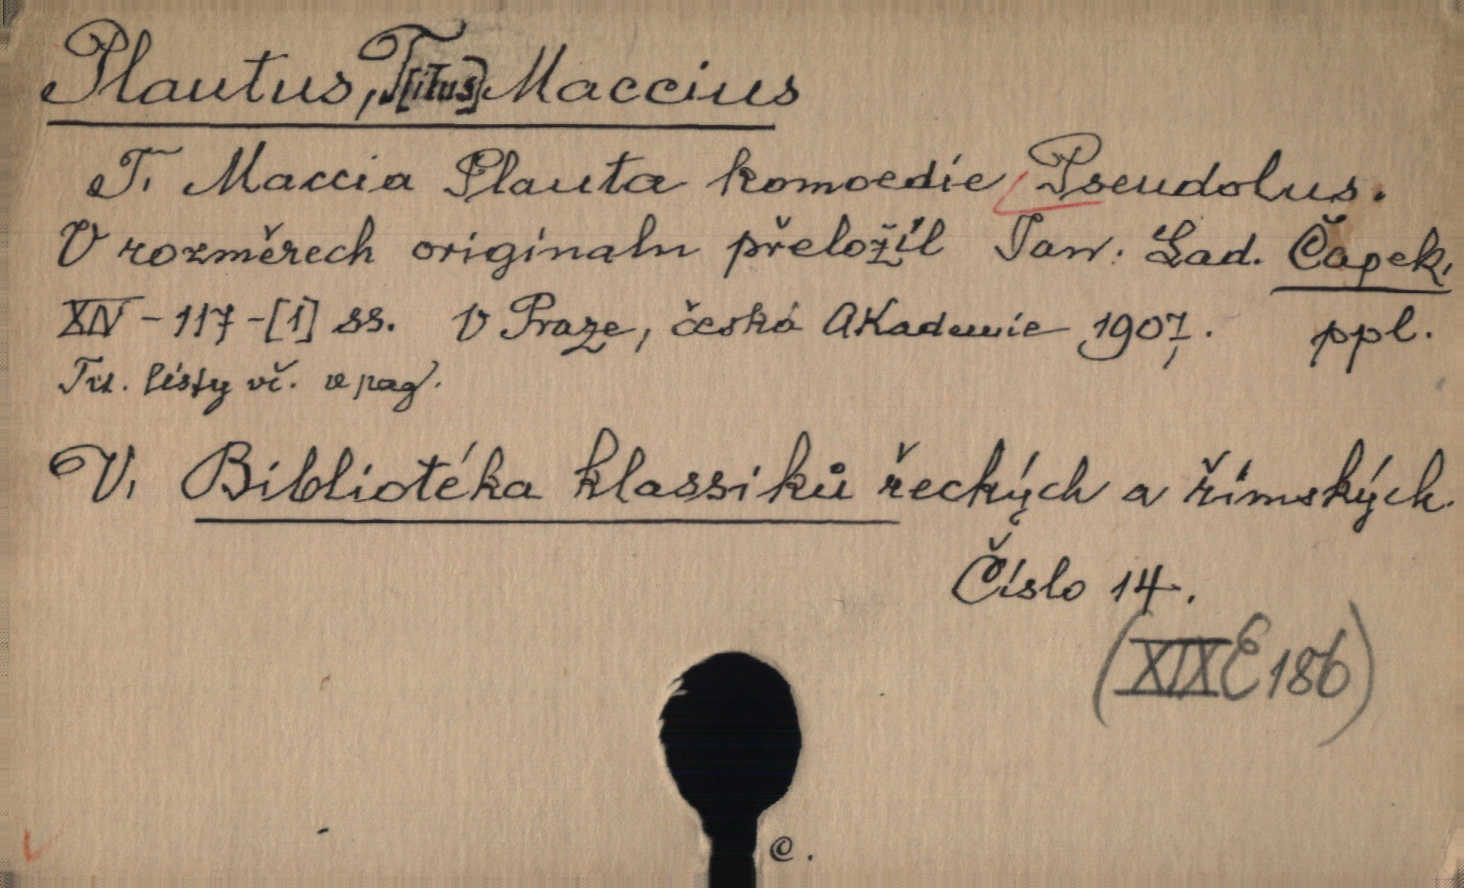 Plautus, T[itus] Maccius
T. Maccia Plauta komoedie Pseudolus.
V rozměrech originalu přeložil Jar. Lad. Čapek.
XIV - 117 - [1] ss. V Praze, česká Akademie 1907. ppl.
Tit. listy vč. v pag.
V. Bibliotéka klassiků řeckých a římských.
Číslo 14.
(XIX E 186)
C.